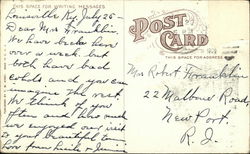 THIS SPACE FOR WRITING MESSAGES
Louisville Ky. July 25
Dear Mrs Franklin.
We have been here
over a week. but
both have had
colds and you can
imagine the rest.
We think of you
often and how much
we enjoyed our visit
to your beautiful
Love from
POST
CARD
THIS SPACE FOR ADDRESS
Mrs Robert Franklin
22 Malbone Road,
New Port.
R. I.